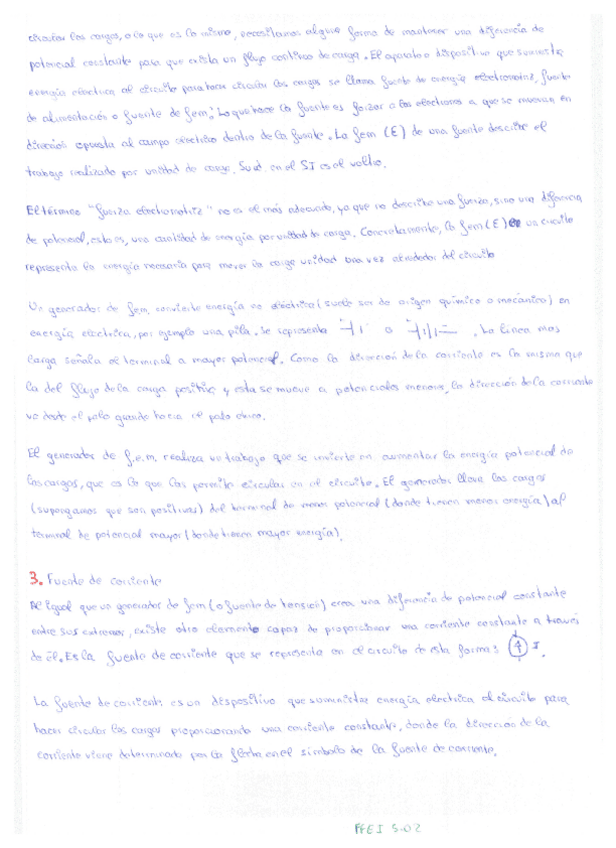 circular las cargas, o lo que es lo mismo, necesitamos alguna forma de mantener una diferencia de
potencial constante para que exista un flujo continuo de carga. El aparato o dispositivo que suministra
energía eléctrica al circuito para hacer circular las cargas se llama fuente de energía electromotriz, fuente
de alimentación o fuente de fem. Lo que hace la fuente es forzar a los electrones a que se muevan en
dirección opuesta al campo eléctrico dentro de la fuente. La fem (E) de una fuente describe el
trabajo realizado por unidad de carga. Su ud. en el SI es el voltio.
El término "fuerza electromotriz" no es el más adecuado, ya que no describe una fuerza, sino una diferencia
de potencial, esto es, una cantidad de energía por unidad de carga. Concretamente, la fem (E) en un circuito
representa la energía necesaria para mover la carga unidad una vez alrededor del circuito
Un generador de fem, convierte energía no eléctrica (suele ser de origen químico o mecánico) en
energía eléctrica, por ejemplo una pila. Se representa o . La línea más
larga señala el terminal a mayor potencial. Como la dirección de la corriente es la misma que
la del flujo de la carga positiva y esta se mueve a potenciales menores, la dirección de la corriente
va desde el palo grande hacia el palo chico.
El generador de f.e.m. realiza un trabajo que se invierte en aumentar la energía potencial de
las cargas, que es lo que las permite circular en el circuito. El generador lleva las cargas
(supongamos que son positivas) del terminal de menor potencial (donde tienen menor energía) al
terminal de potencial mayor (donde tienen mayor energía).
3. Fuente de corriente
Al igual que un generador de fem (o fuente de tensión) crea una diferencia de potencial constante
entre sus extremos, existe otro elemento capaz de proporcionar una corriente constante a través
de él. Es la fuente de corriente que se representa en el circuito de esta forma: I.
La fuente de corriente es un dispositivo que suministra energía eléctrica al circuito para
hacer circular las cargas proporcionando una corriente constante, donde la dirección de la
corriente viene determinada por la flecha en el símbolo de la fuente de corriente.
FFEI 5-02